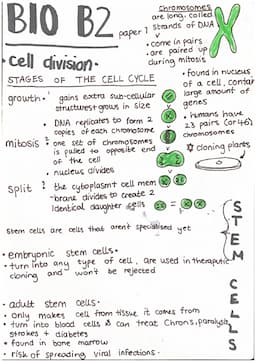 BIO B2
paper 1
chromosomes
are long, coiled
strands of DNA
• come in pairs
• are paired up
during mitosis
• cell division •
STAGES OF THE CELL CYCLE
growth • gains extra sub-cellular
structures + grows in size
• found in nucleus
of a cell, contain
large amount of
genes
• humans have
23 pairs (or 46)
chromosomes
mitosis
• DNA replicates to form 2
copies of each chromosome
• one set of chromosomes
is pulled to opposite end
of the cell
• nucleus divides
cloning plants
split • the cytoplasm + cell mem
-brane divides to create 2
identical daughter cells
stem cells are cells that aren't specialised yet
STEM CELLS
• embryonic stem cells •
• turn into any type of cell, are used in therapeutic
cloning and won't be rejected
• adult stem cells •
• only makes cell from tissue it comes from
• turn into blood cells & can treat paralysis,
strokes + diabetes
• found in bone marrow
• risk of spreading viral infections •